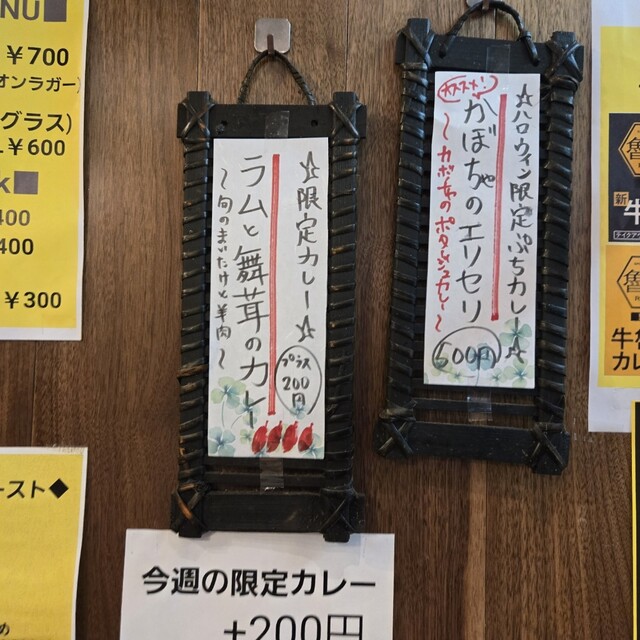 NU
￥700
オンラガー)
グラス)
￥600
k
400
400
￥300
ースト◆
☆限定カレー☆
ラムと舞茸のカレー
〜旬のまいたけと羊肉〜
プラス
200
円
今週の限定カレー
+200円
☆ハロウィン限定ぷちカレー☆
オススメ!
かぼちゃのエリセリ
〜カボチャのポタージュカレー〜
500円
新
牛
カレ